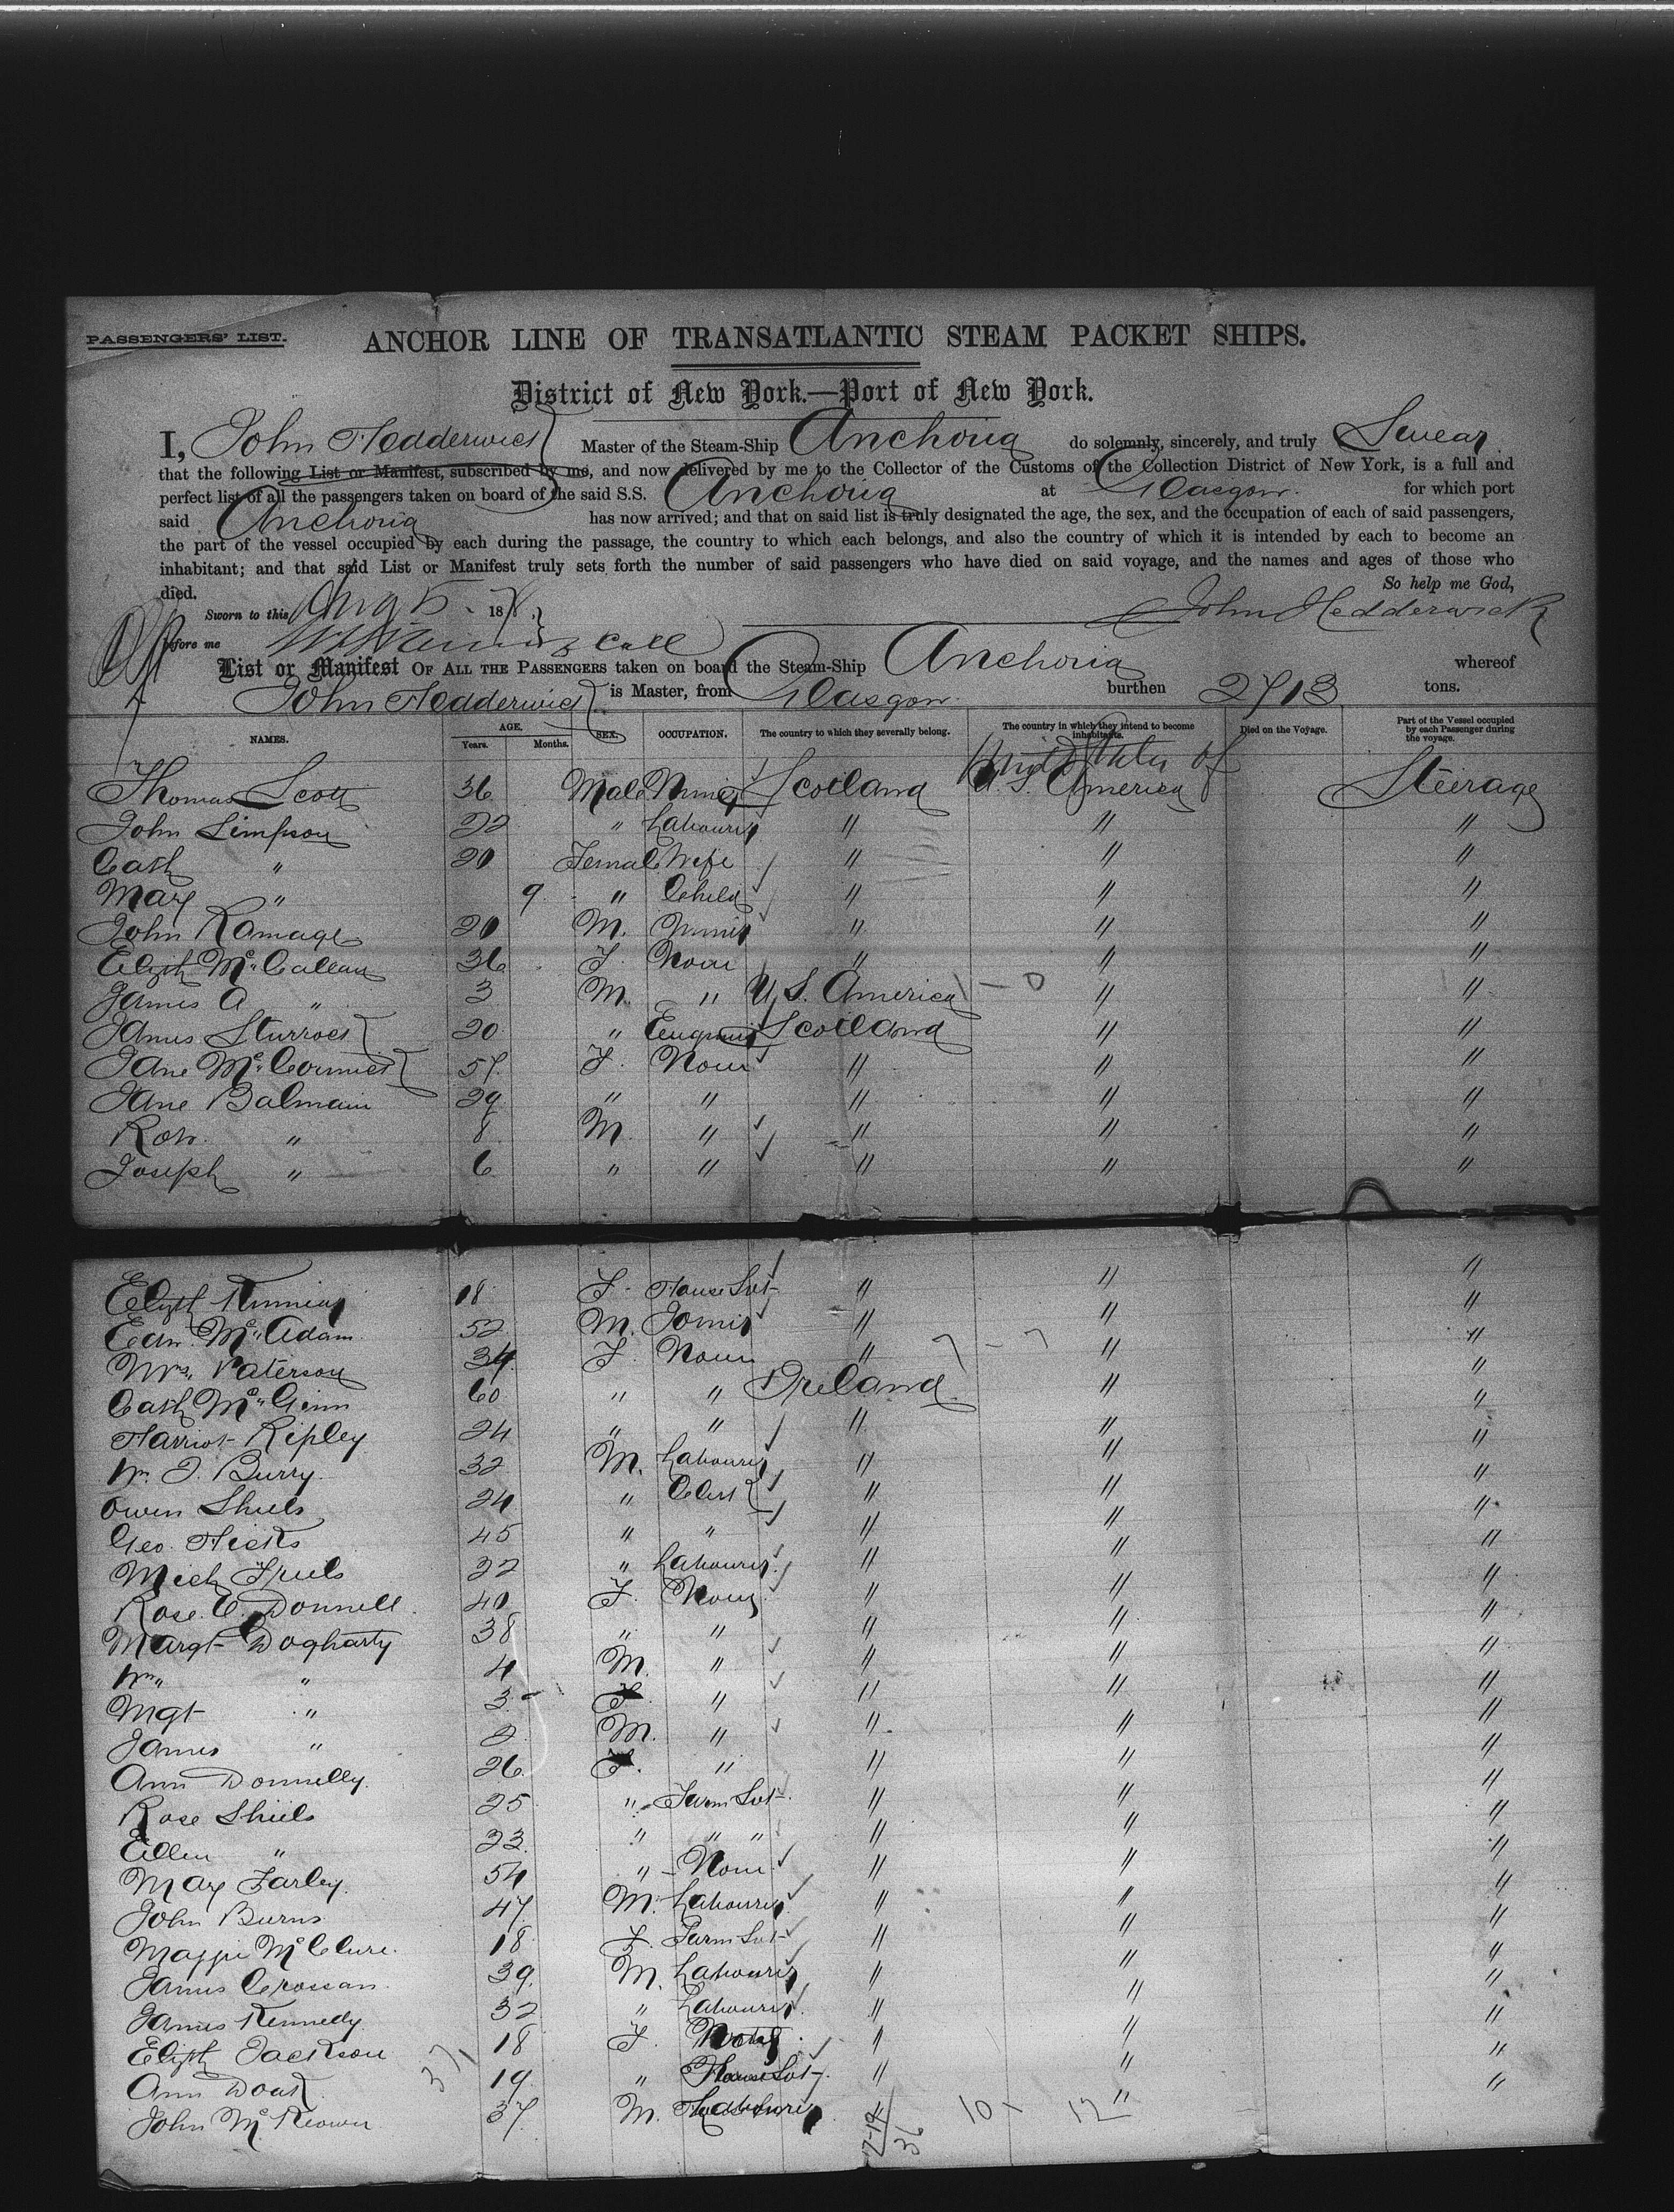 PASSENGERS' LIST.
ANCHOR LINE OF TRANSATLANTIC STEAM PACKET SHIPS.
District of New York.—Port of New York.
I, John Hedderwick Master of the Steam-Ship Anchoria do solemnly, sincerely, and truly Swear
that the following List or Manifest, subscribed by me, and now delivered by me to the Collector of the Customs of the Collection District of New York, is a full and
perfect list of all the passengers taken on board of the said S.S. Anchoria at Glasgow. for which port
said Anchoria has now arrived; and that on said list is truly designated the age, the sex, and the occupation of each of said passengers,
the part of the vessel occupied by each during the passage, the country to which each belongs, and also the country of which it is intended by each to become an
inhabitant; and that said List or Manifest truly sets forth the number of said passengers who have died on said voyage, and the names and ages of those who
died. So help me God,
Sworn to this Aug 5 187 John Hedderwick
before me
List or Manifest OF ALL THE PASSENGERS taken on board the Steam-Ship Anchoria whereof
John Hedderwick is Master, from Glasgow. burthen 2713 tons.
NAMES. AGE. Years. Months. SEX. OCCUPATION. The country to which they severally belong. The country in which they intend to become inhabitants. Died on the Voyage. Part of the Vessel occupied by each Passenger during the voyage.
Thomas Scott 36 Male Miner Scotland United States of U.S. America Steirage
John Simpson 22 " Labourer " " "
Cath " 20 Female Wife " " "
Mary " 9 " Child " " "
John Ramage 20 M. Miner " " "
Elizth McCallum 36 F. None " " "
James A " 3 M. " U.S. America - 0 " "
James Sturrock 20 " Scotland " "
Jane McCormick 57 F. None " " "
Jane Balmain 29 " " " " "
Robt. " 8 M " " " "
Joseph " 6 " " " " "
Elizth 18 F. House Svt " " "
Edw. McAdam 52 M. Joiner " " "
Mrs. Paterson 34 F. None " 7 - 7 " "
Cath McGinn 60 " " Ireland " "
Harriot Ripley 24 " " " " "
Wm. J. Burry 32 M. Labourer " " "
Owen Shiels 24 " Clerk " " "
Geo. Hicks 45 " " " " "
Mich Friels 22 " Labourer " " "
Rose O'Donnell 40 F. None " " "
Margt Dogharty 38 " " " " "
Wm " 4 M. " " " "
Mgt " 3 F. " " " "
James " 2 M. " " " "
Ann Donnelly 26 F. " " " "
Rose Shiels 25 " Farm Svt " " "
Ellen " 23 " " " " " "
Mary Farley 54 " None " " "
John Burns 47 M. Labourer " " "
Maggie McClure 18 F. Farm Svt " " "
James Crossan 39 M. Labourer " " "
James Kennedy 32 " Labourer " " "
Elizth Jackson 18 F. " " "
Ann Doak 19 " House Svt " " "
John McKeown 37 M. Labourer " "
37 36 10 12